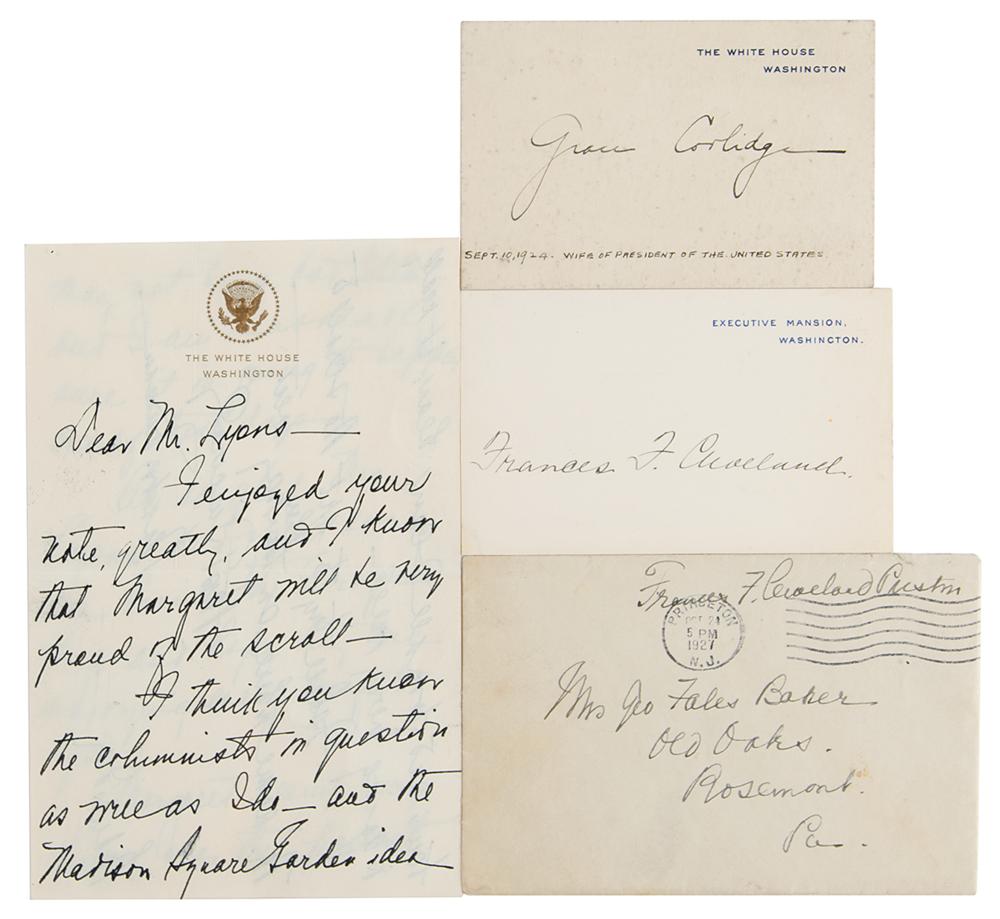 THE WHITE HOUSE
WASHINGTON
Dear Mr. Lyons—
I enjoyed your
note, greatly, and I know
that Margaret will be very
proud of the scroll—
I think you know
the columnists in question
as well as I do— and the
Madison Square Garden idea
THE WHITE HOUSE
WASHINGTON
Grace Coolidge
SEPT. 10, 1924. WIFE OF PRESIDENT OF THE UNITED STATES
EXECUTIVE MANSION,
WASHINGTON.
Frances F. Cleveland.
Frances F. Cleveland Preston
PRINCETON
OCT 24
5 PM
1927
N.J.
Mrs Geo Fales Baker
Old Oaks.
Rosemont.
Pa.